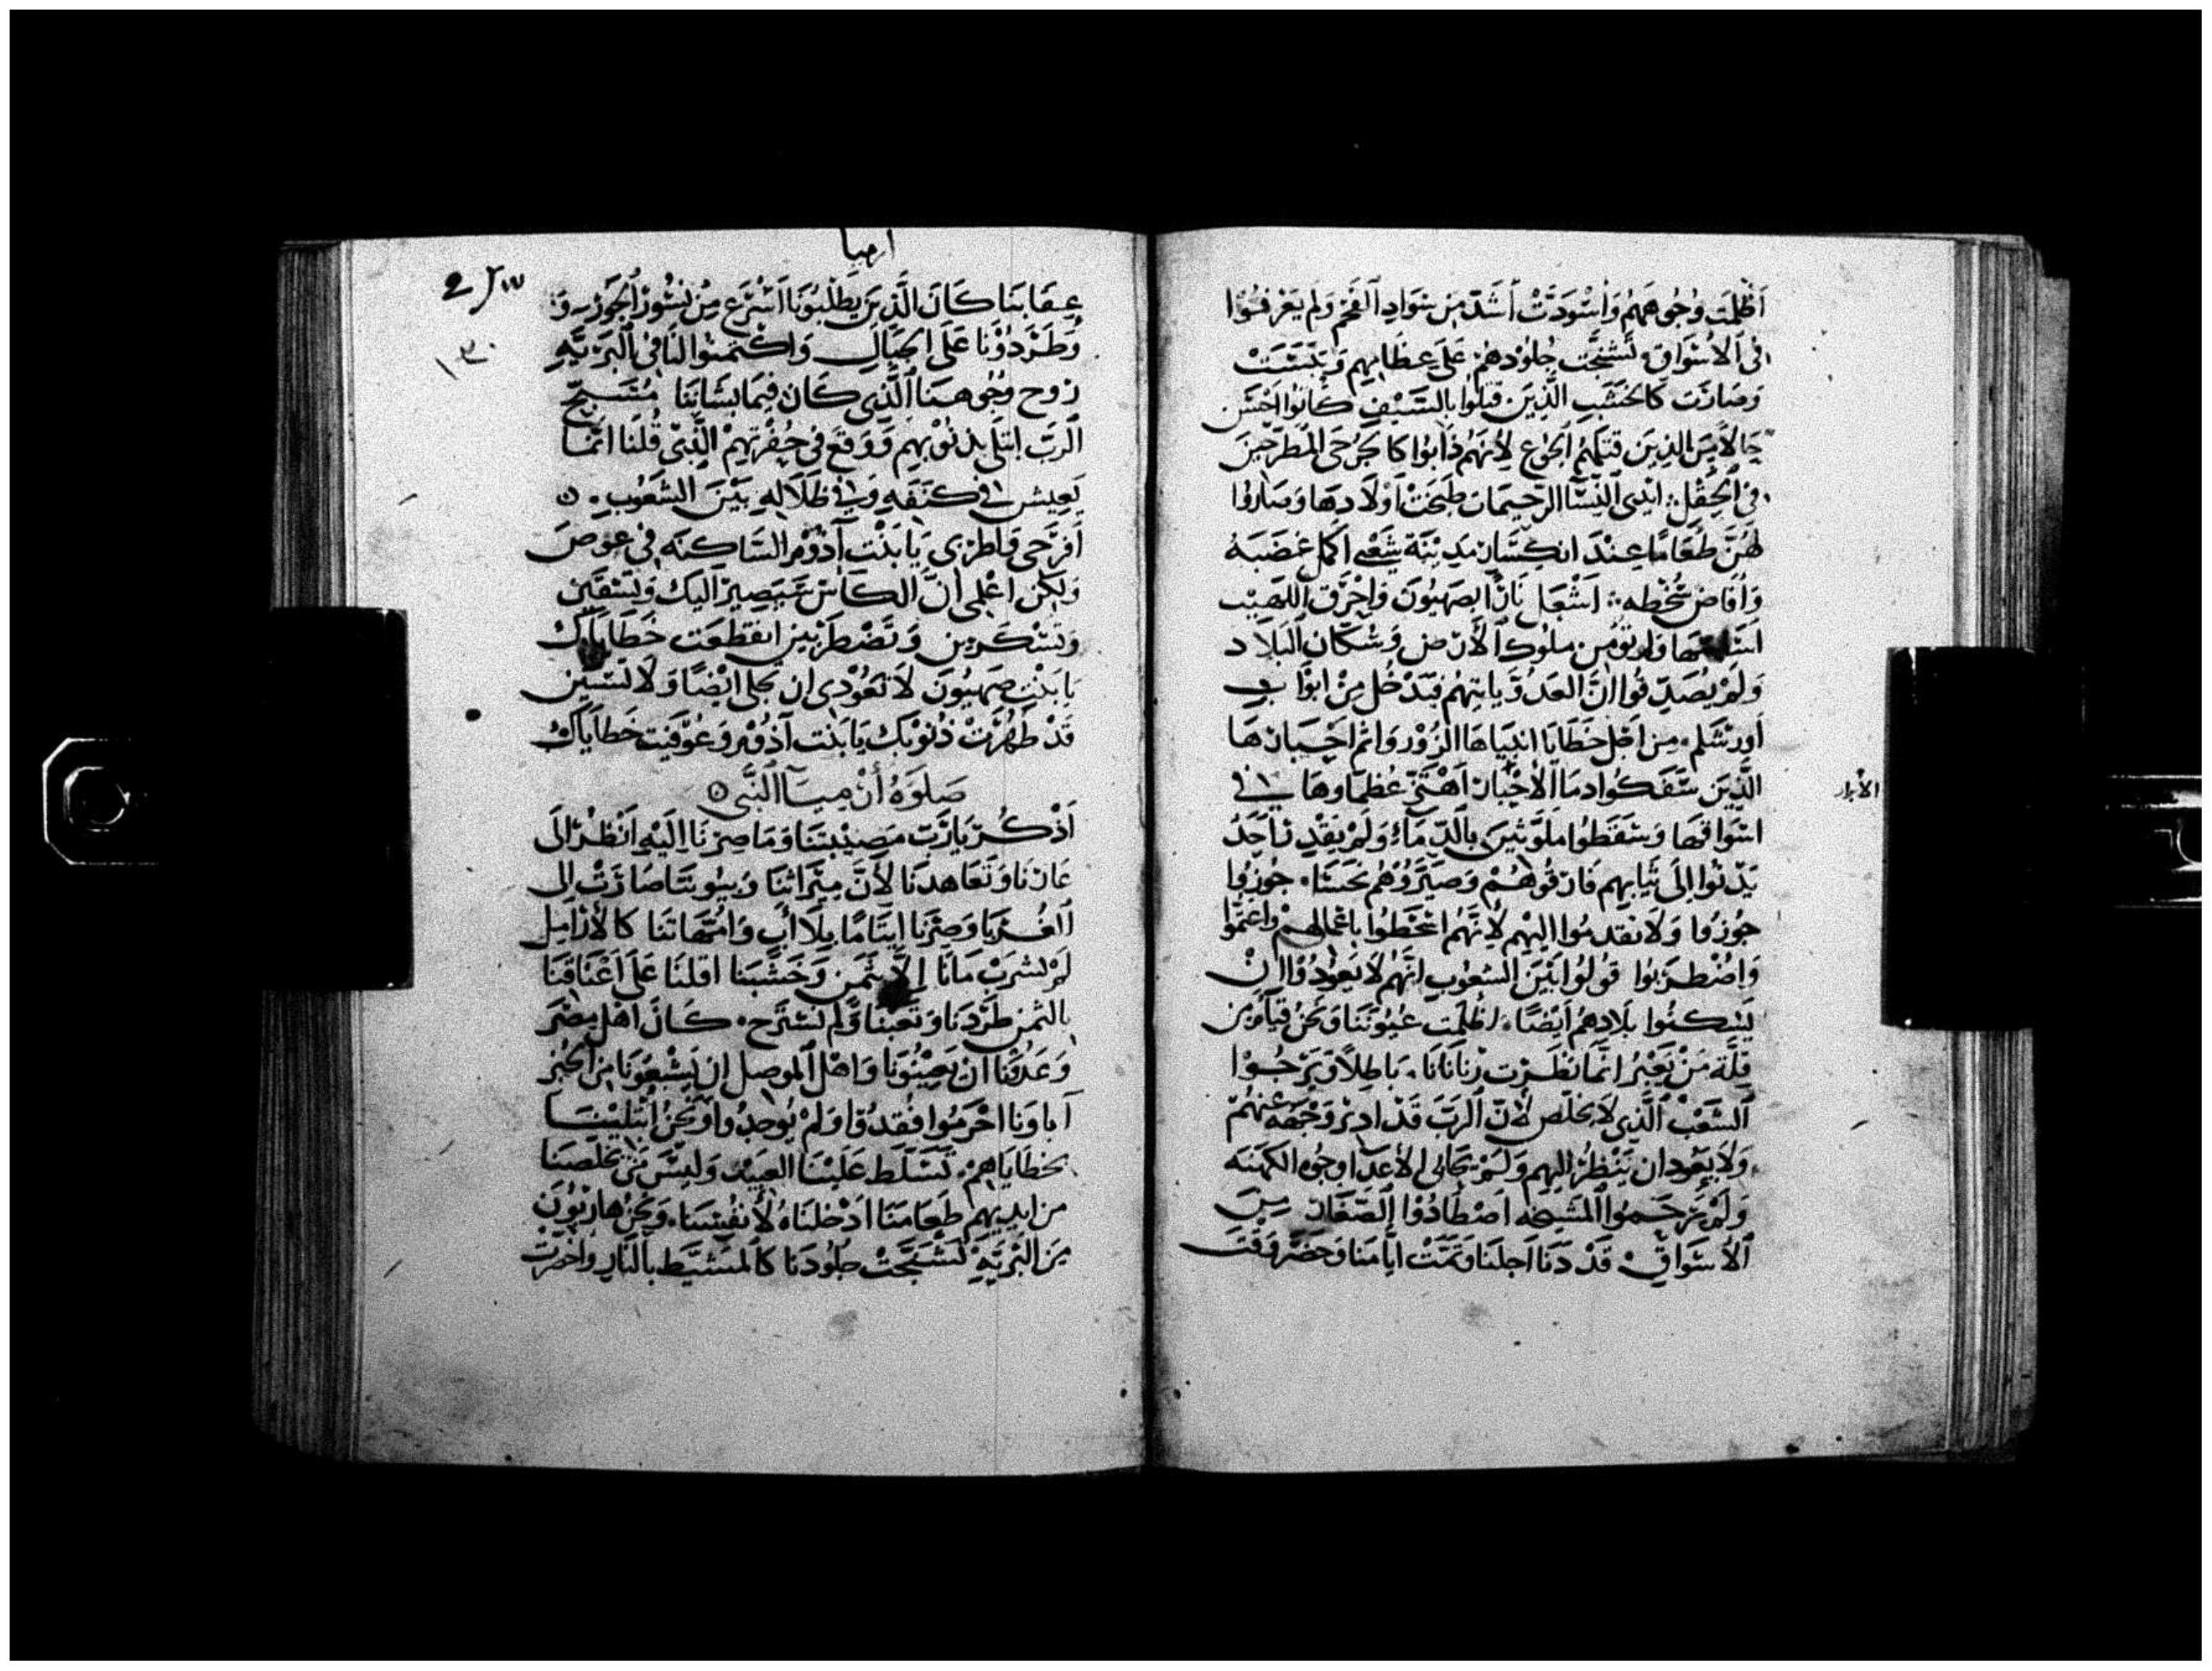 اَظلمَت وُجُوههَمُ وَاسْوَدَتْ اَشَدّ مِن سَوَادِ اَلفَحْم وَلم يَعْرفُوْا
فى اَلاسْوَاق، تَشَنجَّت جُلوْدهُمْ عَلَى عِظَامِهم وَيَبسَتْ
وَصَارَت كَالخشَبِ الَّذِينَ قتلوُا بالسَّيْفِ كَانوُا اَحْسَن
حَالاً مِن الذِينَ قتلهُمْ اَلجُوع لاِنهَمُ ذَابُوا كالجَرْحَى المُطرحيِنَ
فى اَلحِقْل: ايْدى اَلنِسَّا الرحيمَات طَبَخَتْ اَوْلَادهَا وَصَارُوا
لهُنَّ طَعَامًا عِنْدَ انكِسَار مَدِيْنَة شَعْبى اَكمل غَضَبَهُ
وَاَفَاضَ سُخْطه: اَشْعَلَ نَارًا بصَهْيُونَ وَاحْرَق اللَهيْب
اسَاسهَا وَلم تؤُمِن ملوُك اَلاَرْض وَسُكَّان اَلبلَاد
وَلَمْ يُصَدِّقوُا انَّ العَدُوَّ يَاتيهُمْ فيَدْخُل مِنْ ابْوَاب
اَورَشَلم، مِن اَجْل خَطَايَا انبيَاهَا الزُوْر وَاثم اَحْبَارهَا
الَّذِينَ سَّفَكُوا دمَا اَلاَحْبَار اهْتَزّ عُظمَاوهَا فى
اسْوَاقهَا وَسَقَطوُا ملَوَّثينَ بالَدِّمَاءِ وَلَمْ يَقْدِر اَحَدُ
يَدْنُوا اِلَى ثيَابهِم فَارقُوهُمْ وَصَيَّرُوْهُم نجَسًا، جُوزُوا
جُوزُوا وَلاَ تقدمُوا اليْهم لاِنَّهمُ اسْخَطوُا باعْمَالهِمْ وَاعتموُا
وَاضْطرَبوُا قوُلوُا بَيْنَ الشعوُب انَّهُم لاَ يَعوُدُوْا اَنْ
يَسْكنُوا بلَادهِمُ اَيْضًا، اَظلَمت عيُوننَا وَنحنُ قيَام مِن
قِلَّة مَنْ يَعْبُرُ انمَّا نظَرَت رَبَايَانَا، بَاطِلاً وَيَرْجُوْا
اَلشَعْبُ الَّذِى لَا يخلَّص لاَنّ اَلربَّ قَدْ ادِيرْ وَجْههُ عَنهُمْ
وَلاَ يَعُود ان يَنْظُرُ اليهِم وَلَمْ يحَابى الاَعدَا وجُوه الكَهنَه
وَلَمْ يَرْحَموُا المَشيخَه اصْطَادُوْا اِلصِّغَار مِنَ
اَلاَسْوَاقِ، قَدْ دَنَا اَجلنَا وَتمّتْ ايَّامنَا وَحَضَر وَقْتَ
الاَبرار
ارميا
١٣٠
عِقَابنَا كَانَ الَّذِينَ يَطْلُبُوْنَا اَسْرَع مِنْ نسُورْ اَلجَوّ وَ
وَطَرَدُوْنَا عَلَى الجبَال وَاكْتمنوُا لنَا فى اَلبَرِّيَّهِ
رُوح وجُوهنَا اَلَّذِى كَان فيمَا بشَانِنَا مَسِيح
اَلربَّ ابتلَى بذنُوْبهِم وَوَقع فى حُفْرَتهِمْ الَّذِىْ قُلنَا انَّمَا
يَعِيش فى كَنَفَهِ وَفى ظِلَالهِ بَيْنَ الشعُوب
اَفرَحى وَاطرَبى يَا بَنْت آدُوْم السَّاكِنَه فى عَوصَ
وَلكِن اعْلمى انَّ الكَاسَ سَيَصِيرُ اليك وَتسْقَيْن
وَتسْكَرين وَتَضْطَربين انقطعَت خَطَايَاك
يَا بَنْت صَهيُونَ لَا تعوُدى ان تجلى ايْضًا وَلَا تسْبَين
قَدْ طَهُرَتْ ذُنوْبك يَا بَنْت آدُوْم وَعُوْقبَت خَطايَاك
صَلوةُ اَرْمِيَا اَلنَبَّى
اَذْكُرْ يَا رَبّ مَصِيْبتنَا وَمَا صِرْنَا الَيْهِ اَنْظُرْ اِلَى
عَارنَا وَتَعَاهدنَا لاَنَّ مِيْرَاثنَا وَبيُوتنَا صَارَتْ اِلى
اَلغُربَا وَصِرْنَا ايتَامًا بلَا اَب وَامُّهَاتنَا كَالاَرَامِل
لَمْ نشرَبْ مَانَا اِلاّ بثمَن وَخَشَبنَا اقلنَا عَلَى اَعْنَاقنَا
بالثمَن طرَّدنَا وَتَعَبنَا وَلم نسْترَح، كَانَ اهْل مِصْرَ
وَعَدُوْنَا ان يَعِينُوْنَا وَاهْل اَلموصِل ان يَشْبعُوْنَا مِن الخُبز
آباونا اجْرَمُوا ففقدُوْا وَلَمْ يُوجدُوا وَنَحْنُ ابْتلَيْنَا
بخطايَاهِمْ، تَسَلّط عَليْنَا العبَيْد وَليْسَ مَن يخَلّصنَا
من ايديهم طَعَامنَا ادْخلنَاهُ لاَنْفُسنَا، وَنحْنُ هَارِبُوْنَ
مِن البرّيَّه تَشَنجّتْ جلوُدنَا كَالمشَيَّط بالنَار وَاخرَت